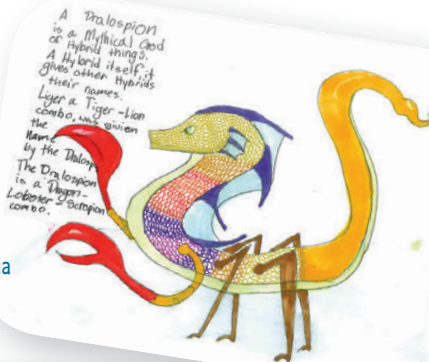 A Dralospion
is a Mythical God
of Hybrid things.
A Hybrid itself, it
gives other Hybrids
their names.
Liger a Tiger-Lion
combo, was given
the
Name
by the Dralosp
The Dralospion
is a Dragon-
Lobster-Scropion
combo.
a